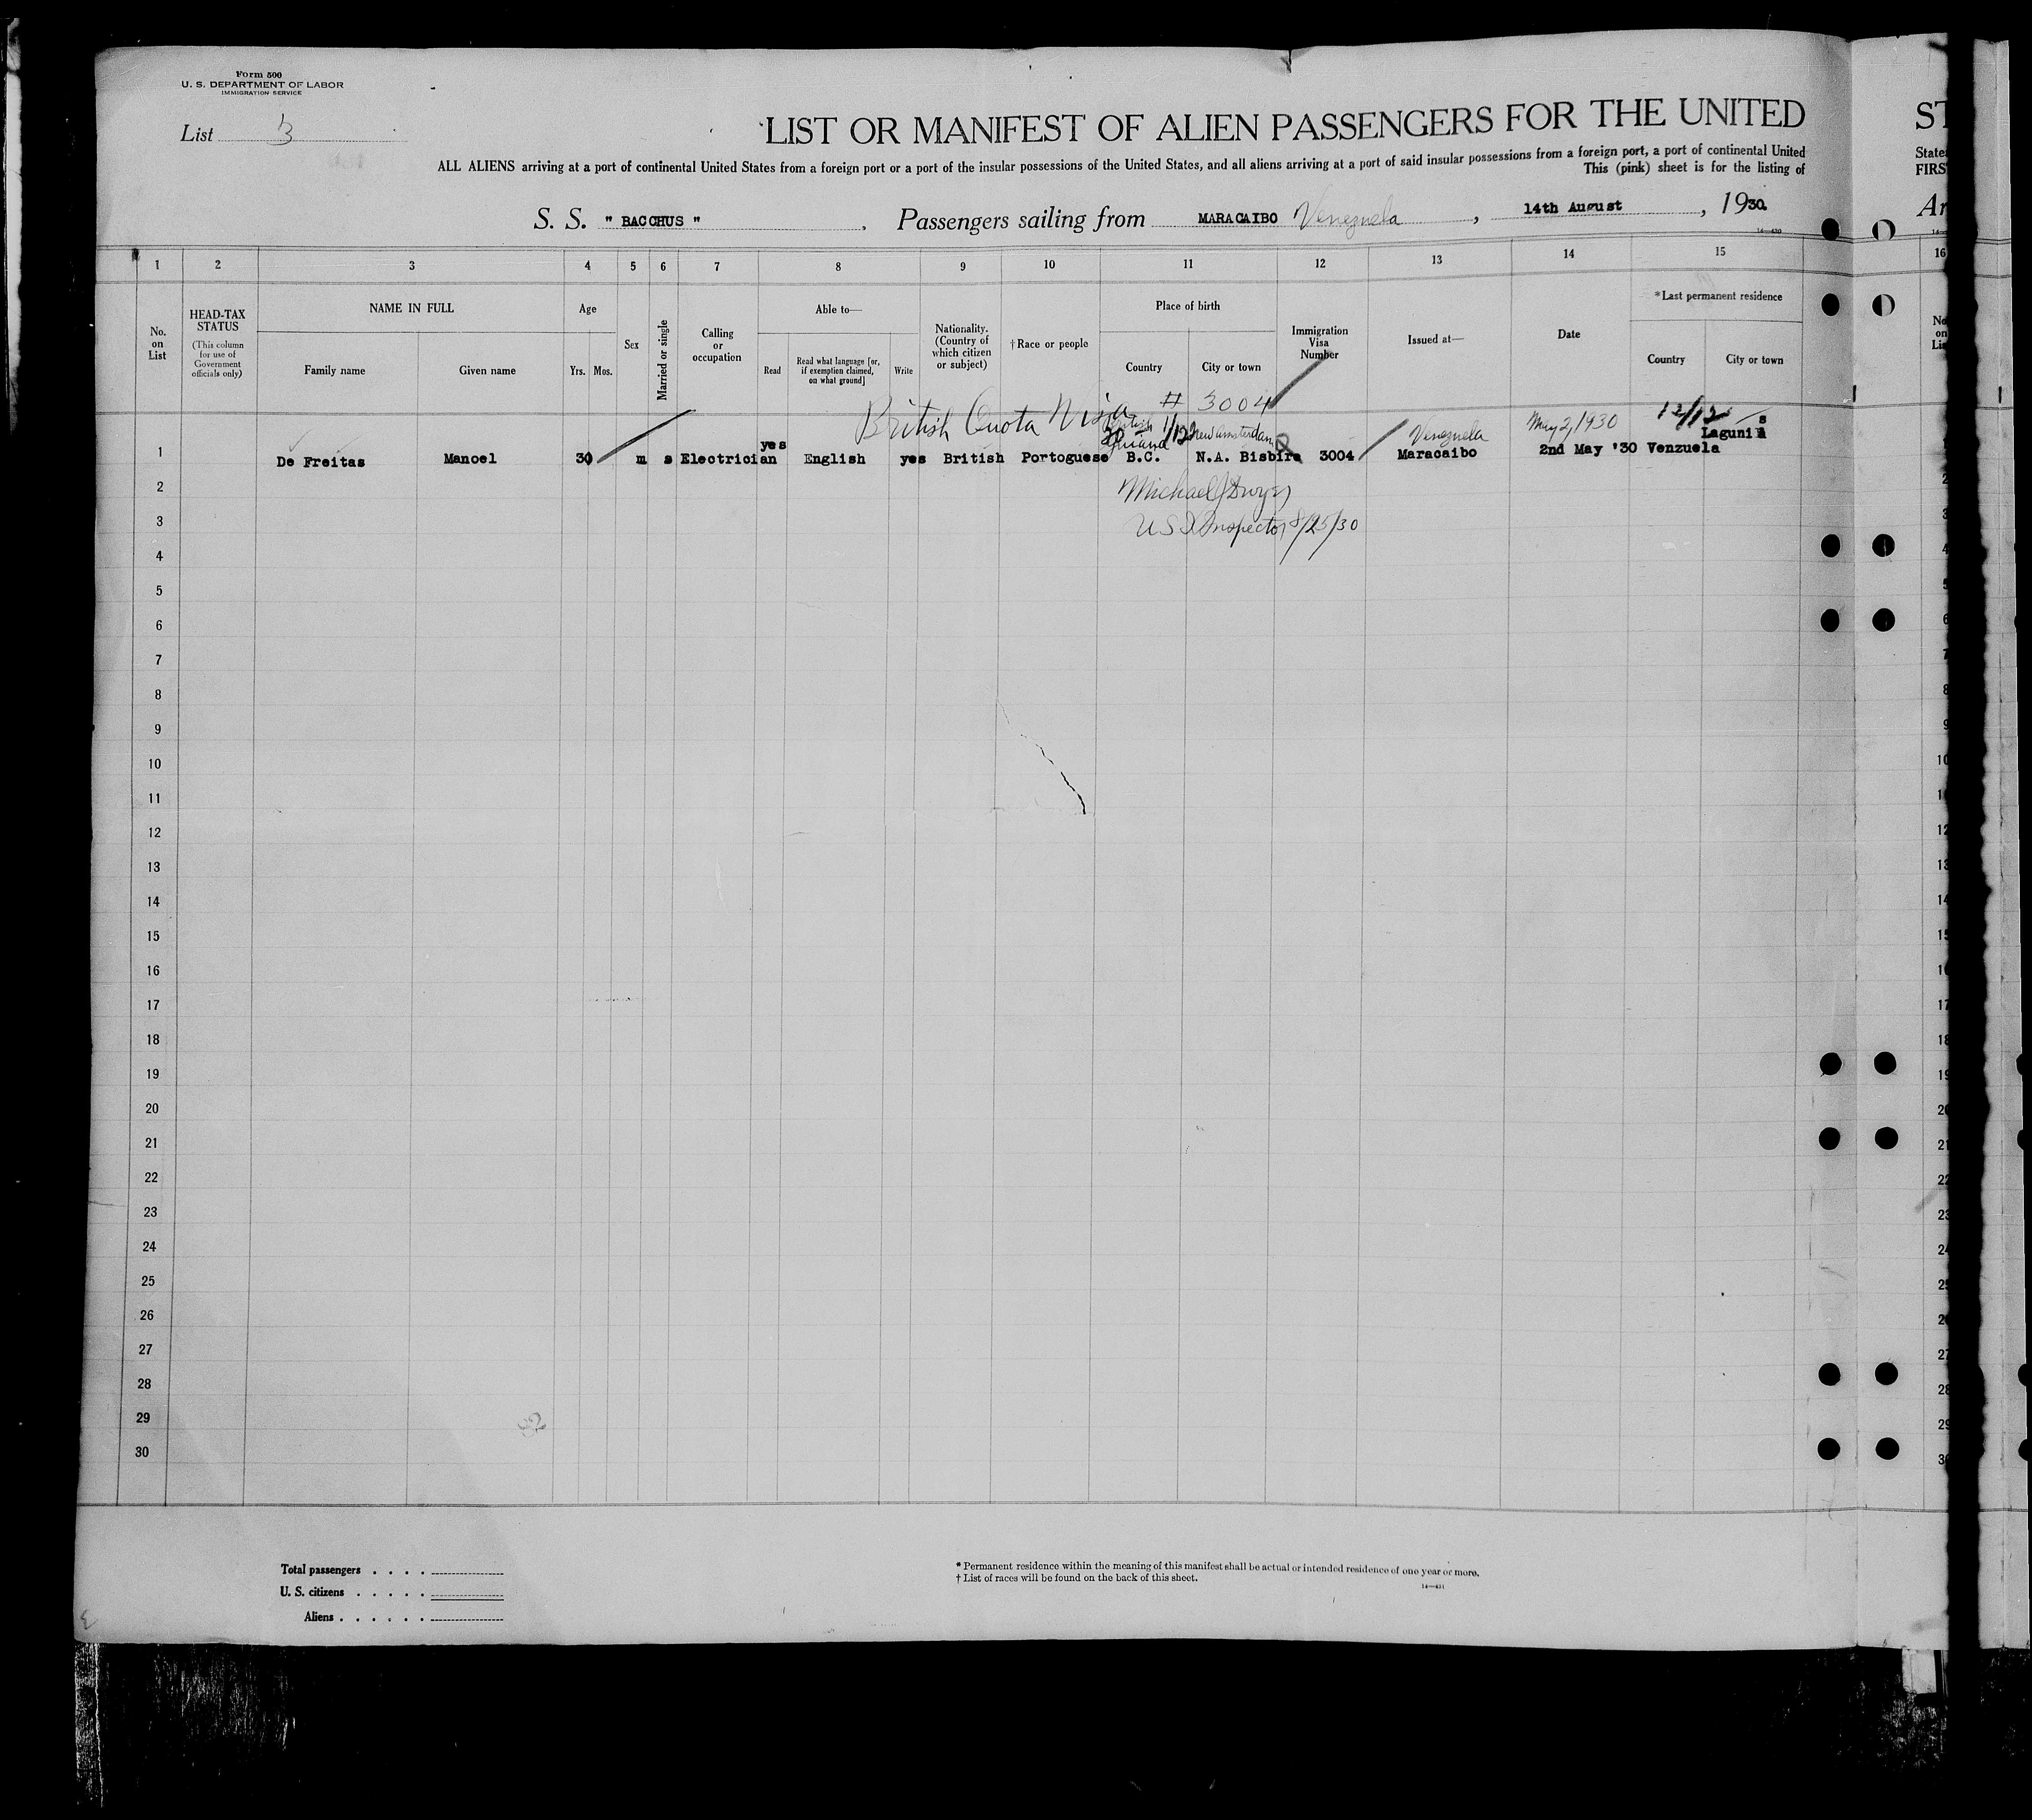 Form 500
U. S. DEPARTMENT OF LABOR
IMMIGRATION SERVICE
List 3
LIST OR MANIFEST OF ALIEN PASSENGERS FOR THE UNITED
ST
ALL ALIENS arriving at a port of continental United States from a foreign port or a port of the insular possessions of the United States, and all aliens arriving at a port of said insular possessions from a foreign port, a port of continental United
State
This (pink) sheet is for the listing of
FIRS
S. S. " BACCHUS " , Passengers sailing from MARACAIBO Venezuela , 14th August , 1930.
Ar
14—430
1 2 3 4 5 6 7 8 9 10 11 12 13 14 15 16
No. on List
HEAD-TAX STATUS
(This column for use of Government officials only)
NAME IN FULL
Family name
Given name
Age
Yrs. Mos.
Sex
Married or single
Calling or occupation
Able to—
Read
Read what language [or, if exemption claimed, on what ground]
Write
Nationality. (Country of which citizen or subject)
†Race or people
Place of birth
Country
City or town
Immigration Visa Number
Issued at—
Date
*Last permanent residence
Country
City or town
British Quota Visa # 3004
British Guiana
New Amsterdam
Venezuela
May 2, 1930
1 De Freitas Manoel 30 m s Electrician yes English yes British Portoguese B.C. N.A. Bisbire 3004 Maracaibo 2nd May '30 Venzuela Lagunia s
2 Michael J Dwyer
3 U S Inspector 8/25/30
4
5
6
7
8
9
10
11
12
13
14
15
16
17
18
19
20
21
22
23
24
25
26
27
28
29
30
Total passengers . . . .
U. S. citizens . . . . .
Aliens . . . . . .
* Permanent residence within the meaning of this manifest shall be actual or intended residence of one year or more.
† List of races will be found on the back of this sheet.
14—431